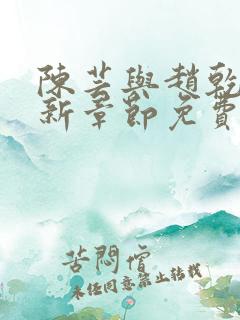 陳芸與趙乾
新章節免費
苦悶僧
未經同意禁止轉載